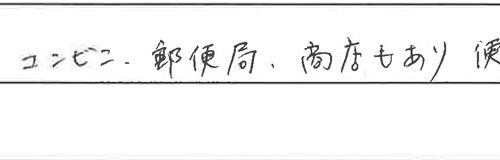 コンビニ、郵便局、商店もあり 便